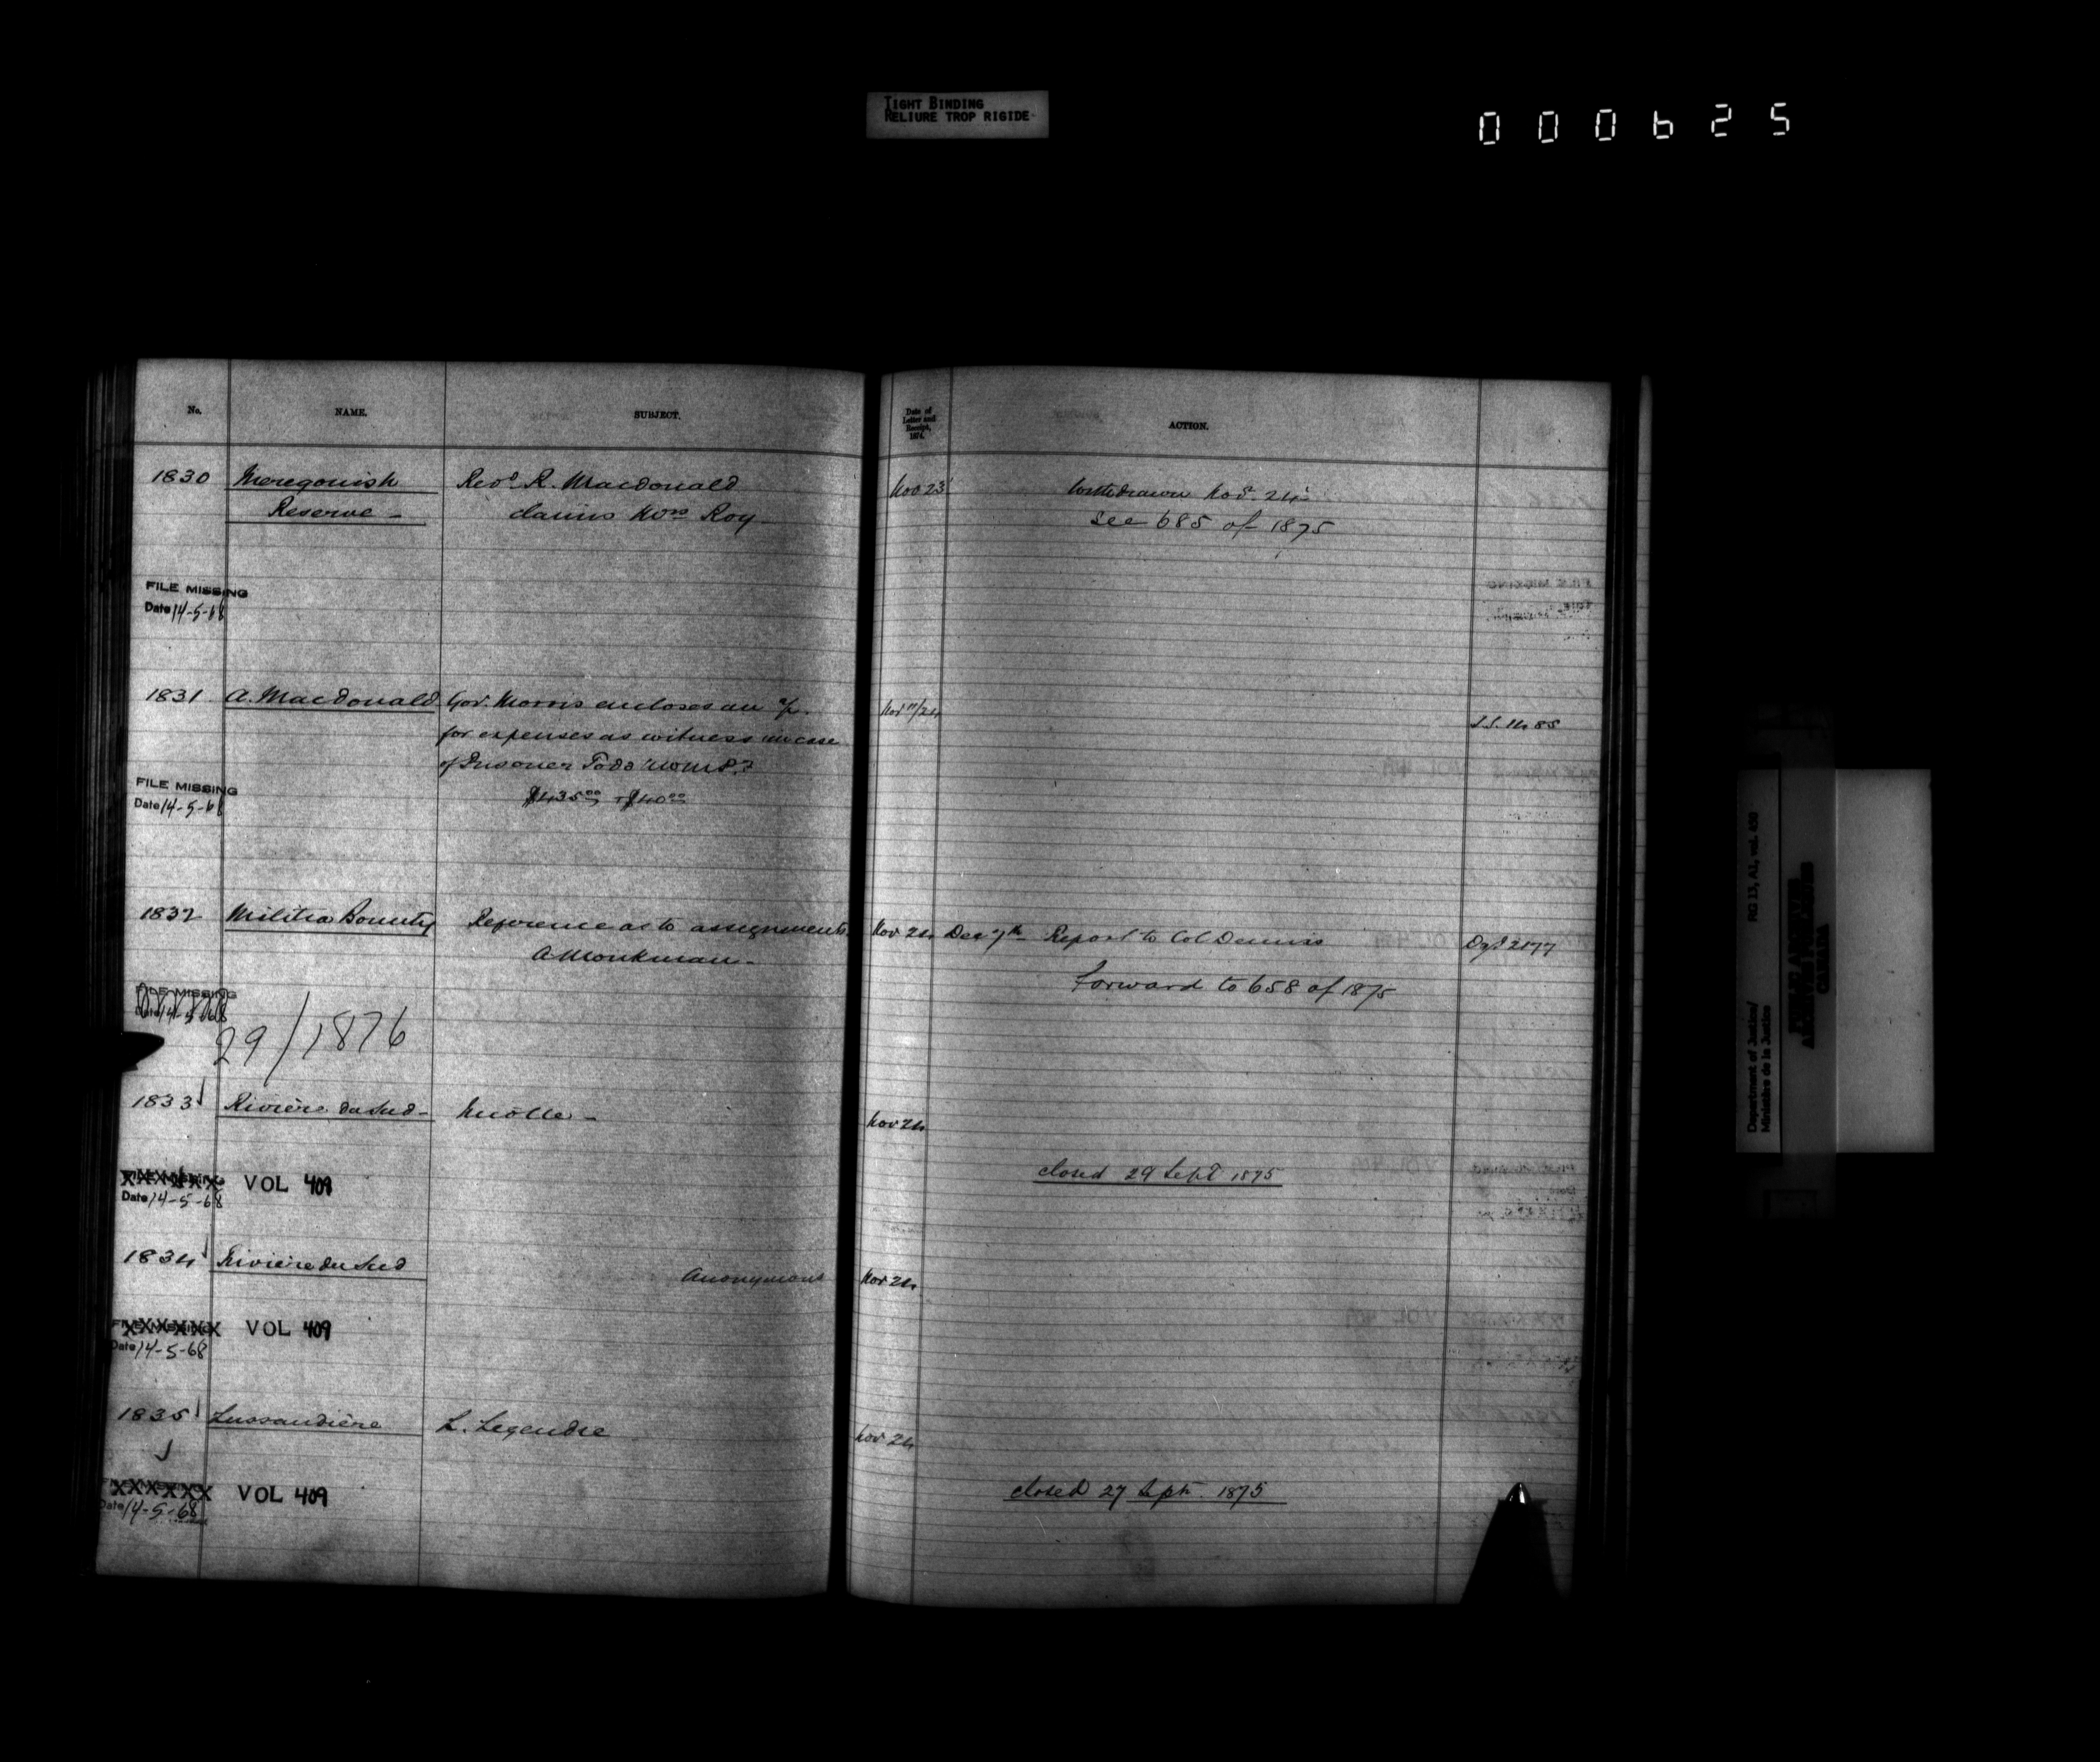 TIGHT BINDING
RELIURE TROP RIGIDE
000625
No. NAME. SUBJECT. Date of Letter and Receipt, 1874. ACTION.
1830 Merigonish Revd. R. Macdonald Nov 23 Withdrawn Nov. 24
Reserve - claims Roy see 685 of 1875
FILE MISSING
Date 14-5-68
1831 A. Macdonald Gov. Morris encloses an a/c. Nov 11/24
for expenses as witness in case
of Prisoner Todd
$435.00 + $40.00
FILE MISSING
Date 14-5-68
1832 Militia Bounty Reference as to assignments. Nov 24 Dec 7th Report to Col Dennis
A Monkman - Forward to 658 of 1875
FILE MISSING
Date 14-5-68
29/1876
1833 Rivière du Sud - Nov 24
FILE MISSING VOL 409 closed 29 Sept 1875
Date 14-5-68
1834 Rivière du Sud Anonymous Nov 24
FILE MISSING VOL 409
Date 14-5-68
1835 Lussaudière L. Legendre Nov 24
XXXXXX VOL 409 closed 27 Sept. 1875
Date 14-5-68
Department of Justice/
Ministère de la Justice
RG 13, A2, vol. 450
PUBLIC ARCHIVES
ARCHIVES PUBLIQUES
CANADA